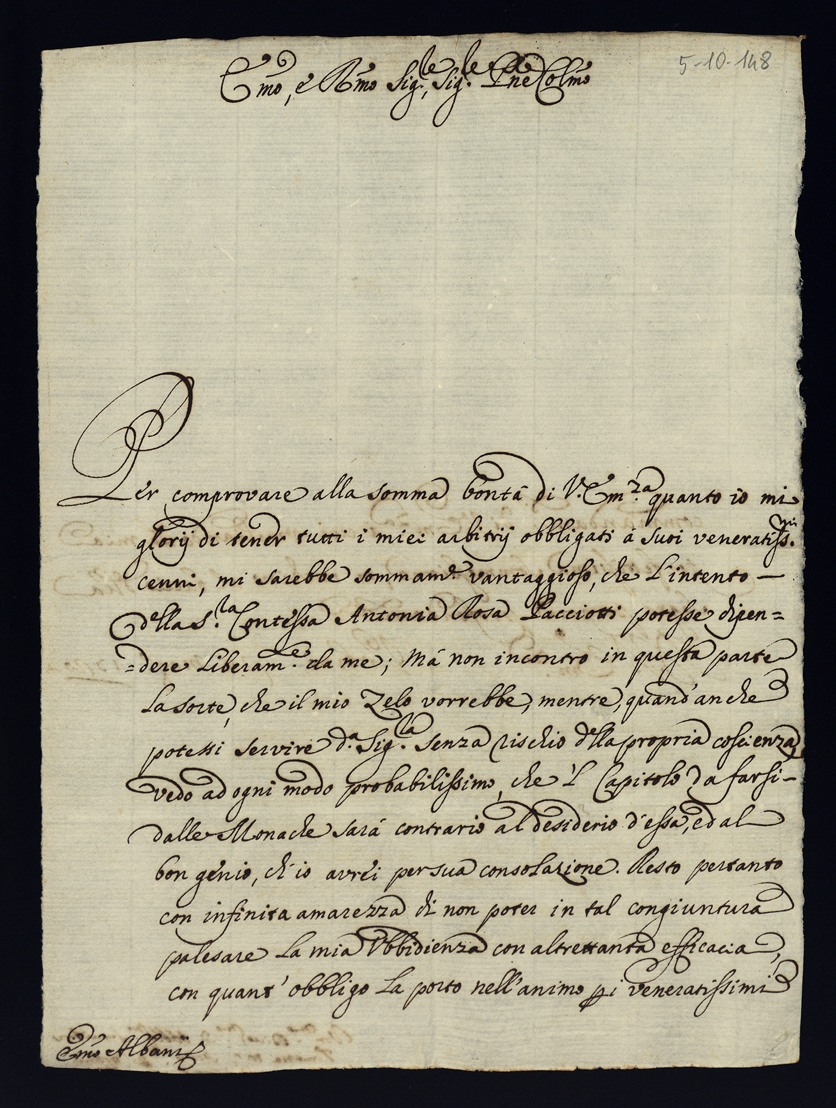 5-10-148
Emo, e Rmo Sig.re, Sig.re Pne Colmo
Per comprovare alla somma bontà di V. Em.za quanto io mi
glorij di tener tutti i miei arbitrij obbligati à suoi veneratiss.mi
cenni, mi sarebbe sommam.e vantaggioso, che l'intento —
della S.ra Contessa Antonia Rosa Pacciotti potesse dipen=
=dere liberam.e da me; Mà non incontro in questa parte
la sorte, che il mio Zelo vorrebbe, mentre, quand'anche
potessi servire d.a Sig.ra senza rischio della propria coscienza,
vedo ad ogni modo probabilissimo, che 'l Capitolo da farsi-
dalle Monache sarà contrario al desiderio d'essa, ed al
bon genio, ch'io avrei per sua consolazione. Resto pertanto
con infinita amarezza di non poter in tal congiuntura
palesare la mia Ubbidienza con altrettanta efficacia,
con quant'obbligo la porto nell'animo p i veneratissimi
Emo Albani